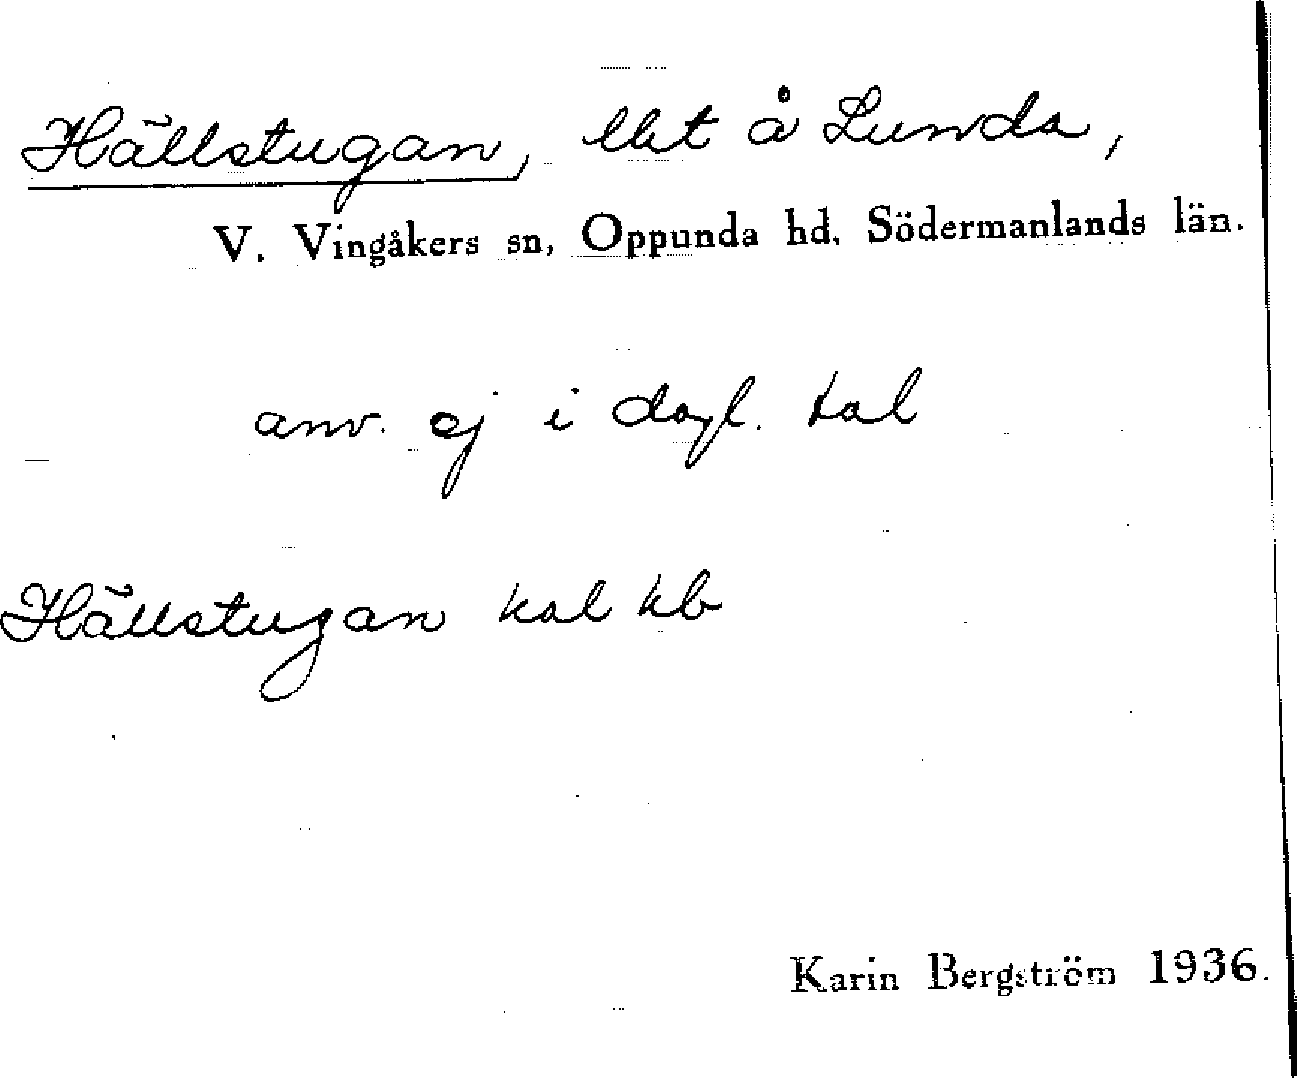 Hällstugan, lht å Lunda,
V. Vingåkers sn, Oppunda hd. Södermanlands län.
anv. ej i dagl. tal
Hällstugan kal kb
Karin Bergström 1936.